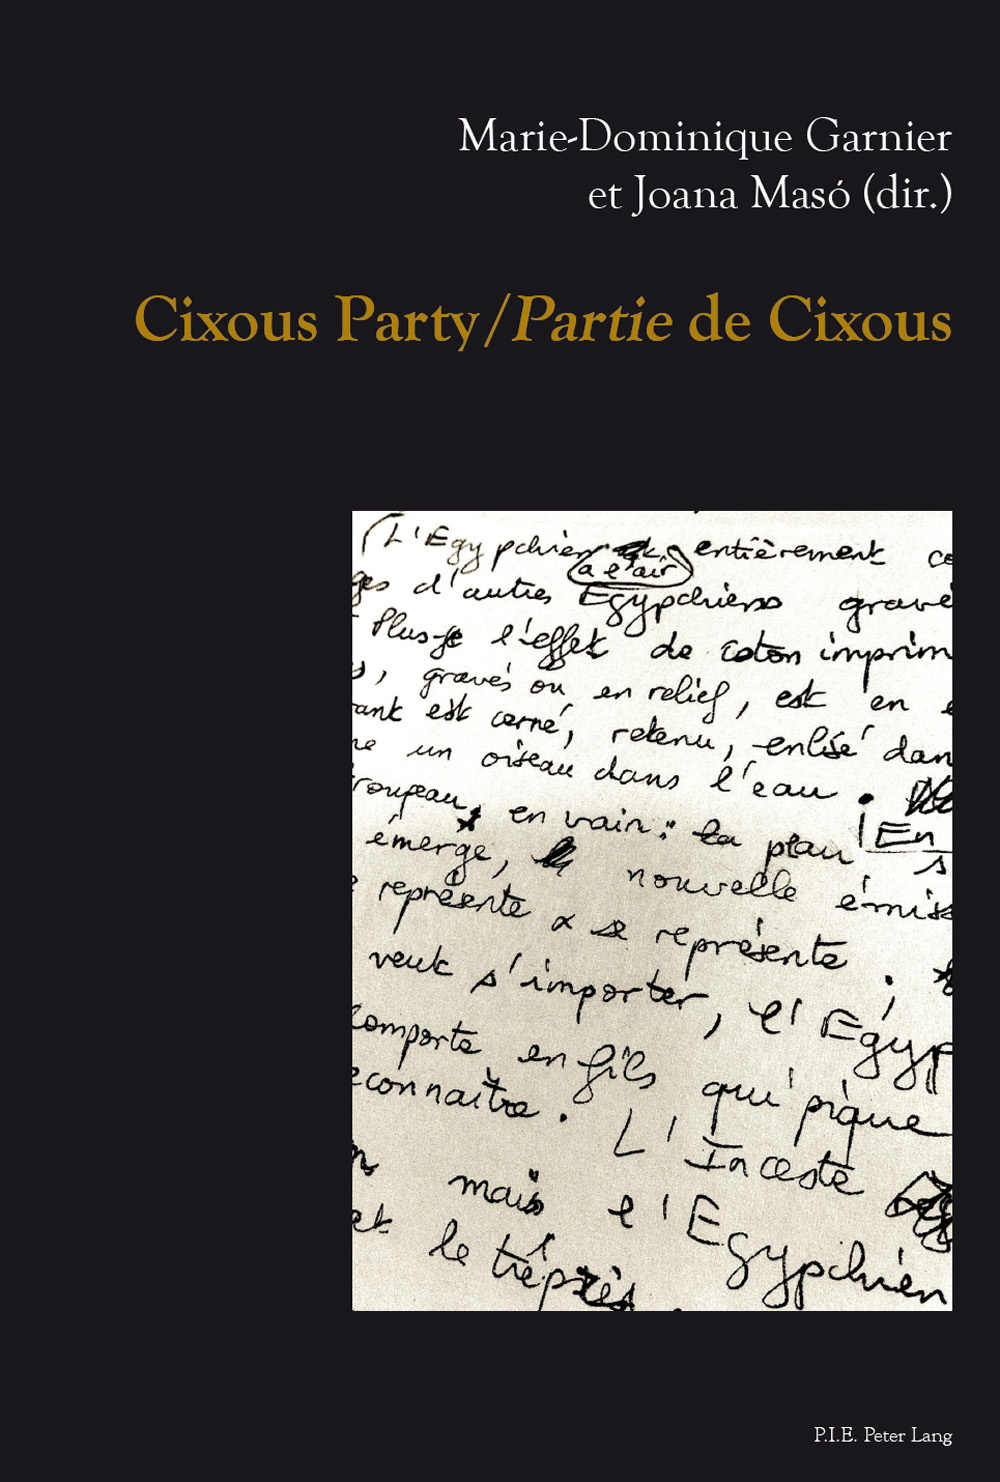 Marie-Dominique Garnier
et Joana Masó (dir.)
Cixous Party/Partie de Cixous
L'Egypchien entièrement
a l'air
d'autres Egypchiens gravé
Plus l'effet de coton imprim
, gravés ou en relief, est en
est cerné, retenu, enlisé dan
un oiseau dans l'eau.
troupeau, en vain: la peau En
émerge, nouvelle émiss
représente & se représente.
veut s'importer, l'Egyp
comporte en fils qu'i pique
econnaître. L'Inceste
mais l'Egypchien
et le très
P.I.E. Peter Lang